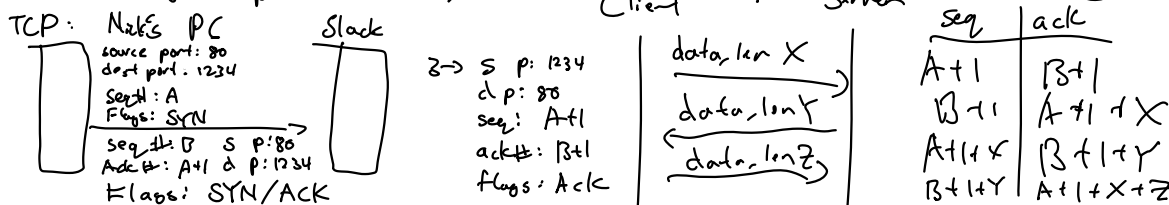 Client
TCP: Nick's PC Slack
source port: 80
dest port: 1234
seq#: A
Flags: SYN
seq #: B S P: 80
Ack#: A+1 d P: 1234
Flags: SYN/ACK
3→ S P: 1234
d p: 80
seq: A+1
ack#: B+1
flags: Ack
data, len X
data, len Y
data, len Z
seq ack
A+1 B+1
B+1 A+1+X
A+1+X B+1+Y
B+1+Y A+1+X+Z